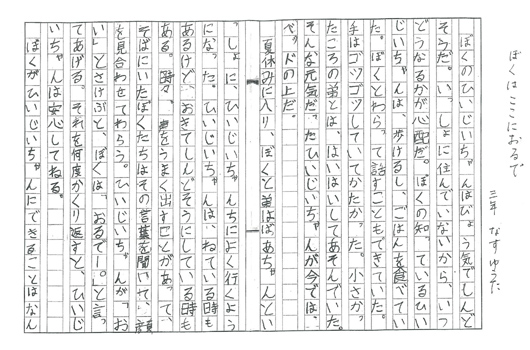 ぼくはここにおるで
三年 なす ゆうた
ぼくのひいじいちゃんはびょう気でしんど
そうだ。いっしょに住んでいないから、いつ
どうなるかが心配だ。ぼくの知っているひい
じいちゃんは、歩けるし、ごはんを食べてい
た。ぼくとわらって話すこともできていた。
手はゴツゴツしていてかたかった。小さかっ
たころの弟とは、はいはいしてあそんでいた。
そんな元気だったひいじいちゃんが今では、
ベッドの上だ。
夏休みに入り、ぼくと弟はばあちゃんとい
っしょに、ひいじいちゃんちによく行くよう
になった。ひいじいちゃんは、ねている時も
あるけど、おきてしんどそうにしている時も
ある。時々、声をうまく出すことがあって、
そばにいたぼくたちはその言葉を聞いて、顔
を見合わせてわらう。ひいじいちゃんが、「お
い」とさけぶと、ぼくは、「おるでー。」と言っ
てあげる。それを何度かくり返すと、ひいじ
いちゃんは安心してねる。
ぼくがひいじいちゃんにできることはなん